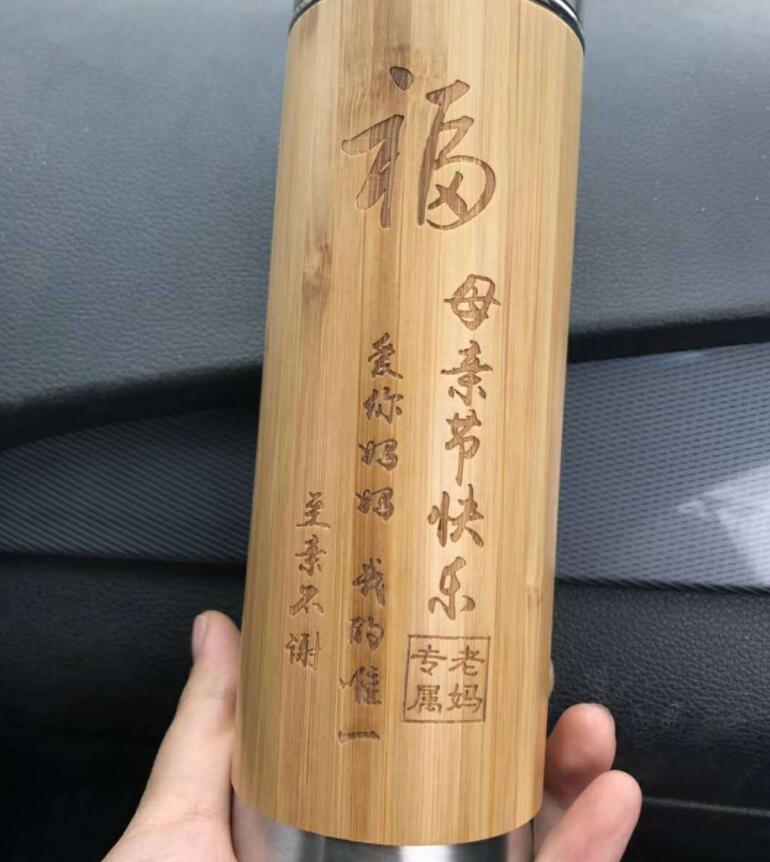 福
母亲节快乐
老妈
专属
爱你妈妈 我的唯一
至亲不谢